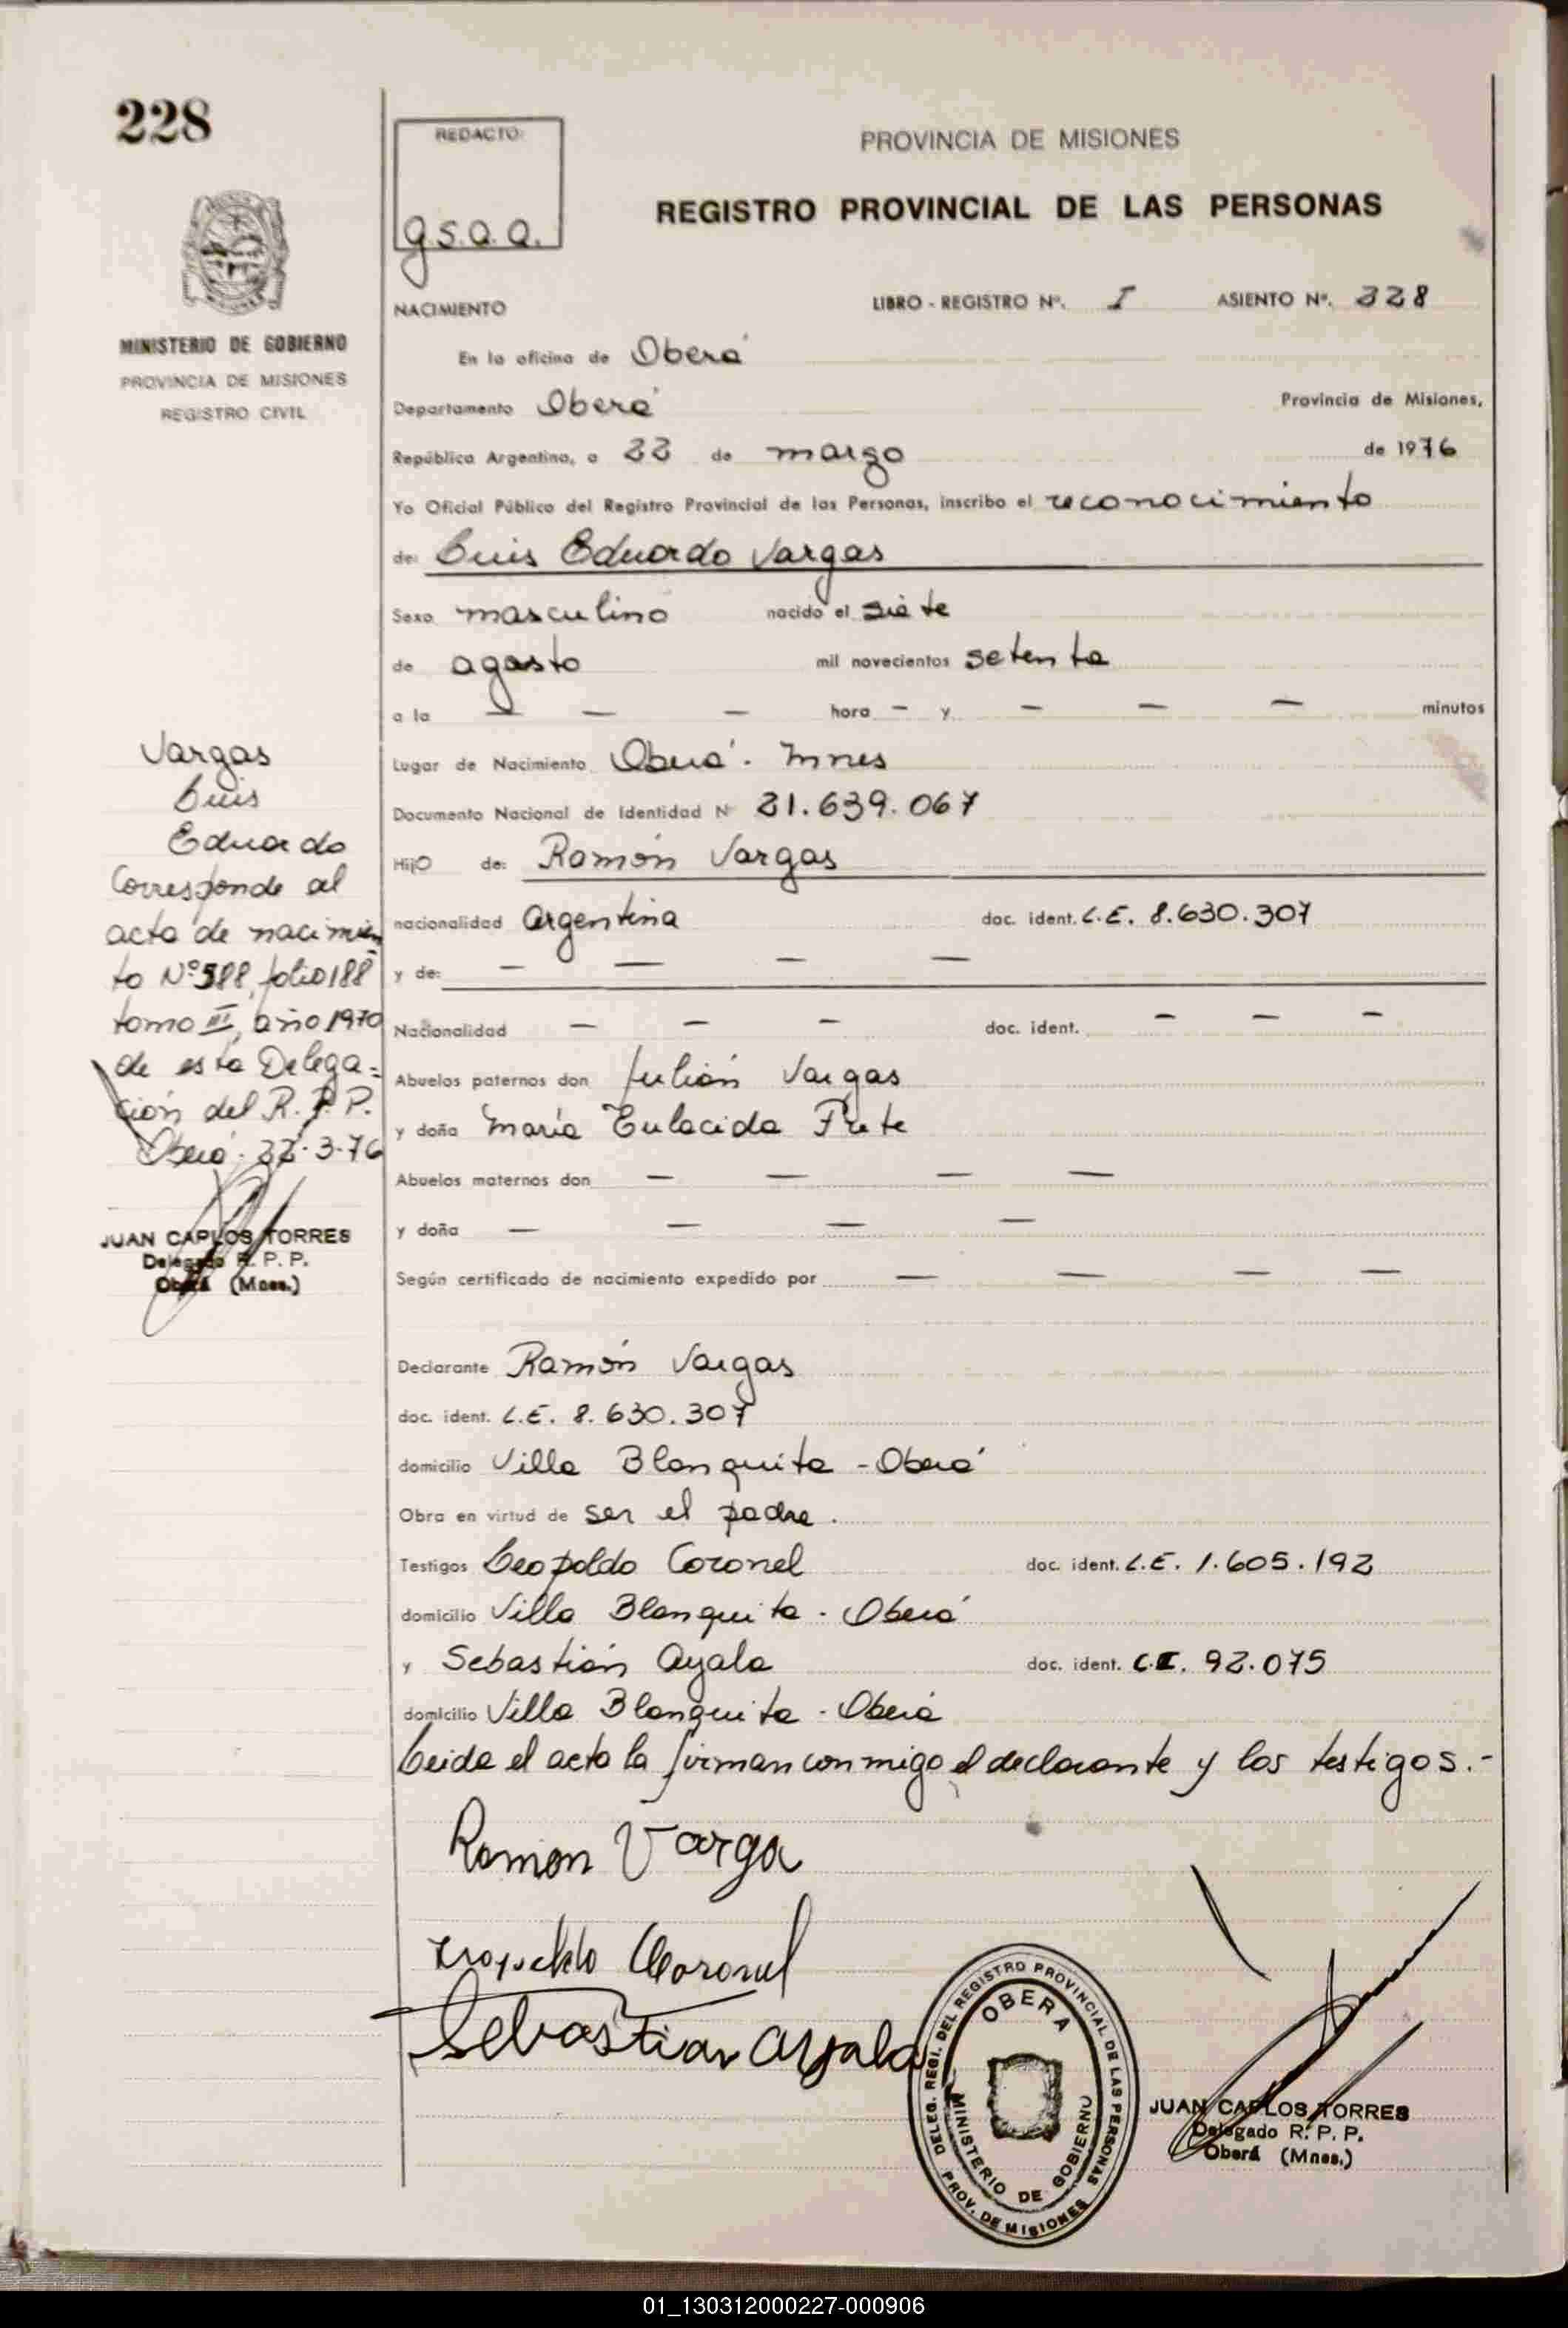 228
REDACTO:
g.s.a.a.
PROVINCIA DE MISIONES
REGISTRO PROVINCIAL DE LAS PERSONAS
MINISTERIO DE GOBIERNO
PROVINCIA DE MISIONES
REGISTRO CIVIL
NACIMIENTO LIBRO - REGISTRO Nº. I ASIENTO Nº. 228
En la oficina de Oberá
Departamento Oberá Provincia de Misiones,
República Argentina, a 22 de marzo de 1976
Yo Oficial Público del Registro Provincial de las Personas, inscribo el reconocimiento
de: Luis Eduardo Vargas
Sexo masculino nacido el siete
de agosto mil novecientos setenta
a la — — — hora — y — — — minutos
Lugar de Nacimiento Oberá. Mnes
Documento Nacional de Identidad Nº 21.639.067
Hijo de: Ramón Vargas
nacionalidad argentina doc. ident. L.E. 8.630.307
y de: — — — —
Nacionalidad — — — doc. ident. — — —
Abuelos paternos don Julián Vargas
y doña María Eulacida Prete
Abuelos maternos don — — — —
y doña — — — —
Según certificado de nacimiento expedido por — — — —
Declarante Ramón Vargas
doc. ident. L.E. 8.630.307
domicilio Villa Blanquita - Oberá
Obra en virtud de ser el padre.
Testigos Leopoldo Coronel doc. ident. L.E. 1.605.192
domicilio Villa Blanquita - Oberá
y Sebastián Ayala doc. ident. C.I. 92.075
domicilio Villa Blanquita - Oberá
Leida el acta la firman conmigo el declarante y los testigos.-
Vargas
Luis
Eduardo
Corresponde al
acta de nacimien
to Nº 588, folio 188
tomo III, año 1970
de esta Delega=
ción del R. P. P.
Oberá. 22-3-76
JUAN CARLOS TORRES
Delegado R. P. P.
Oberá (Mnes.)
Ramon Varga
Coronel
Sebastian Ayala
DELEG. REGI. DEL REGISTRO PROVINCIAL DE LAS PERSONAS
OBERA
MINISTERIO DE GOBIERNO
PROV. DE MISIONES
JUAN CARLOS TORRES
Delegado R. P. P.
Oberá (Mnes.)
01_130312000227-000906